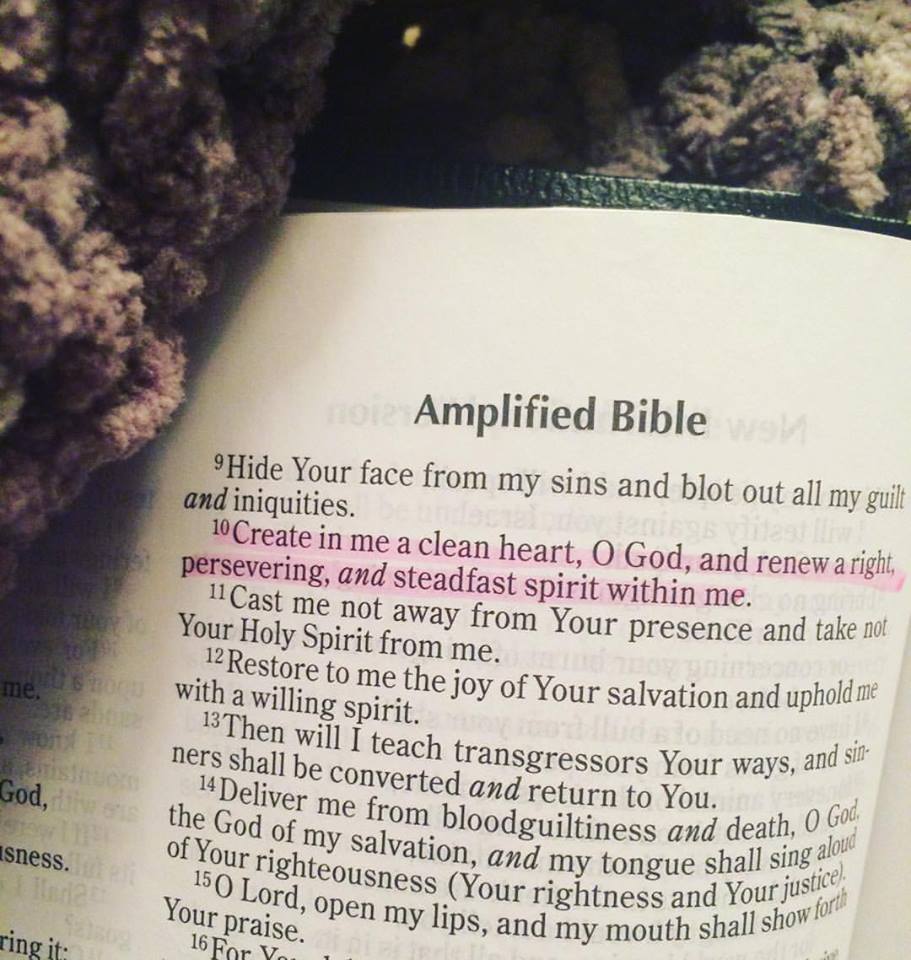 Amplified Bible
9Hide Your face from my sins and blot out all my guilt
and iniquities.
10Create in me a clean heart, O God, and renew a right,
persevering, and steadfast spirit within me.
11Cast me not away from Your presence and take not
Your Holy Spirit from me.
12Restore to me the joy of Your salvation and uphold me
with a willing spirit.
13Then will I teach transgressors Your ways, and sin-
ners shall be converted and return to You.
14Deliver me from bloodguiltiness and death, O God,
the God of my salvation, and my tongue shall sing aloud
of Your righteousness (Your rightness and Your justice).
15O Lord, open my lips, and my mouth shall show forth
Your praise.
16For
me.
God,
ring it: